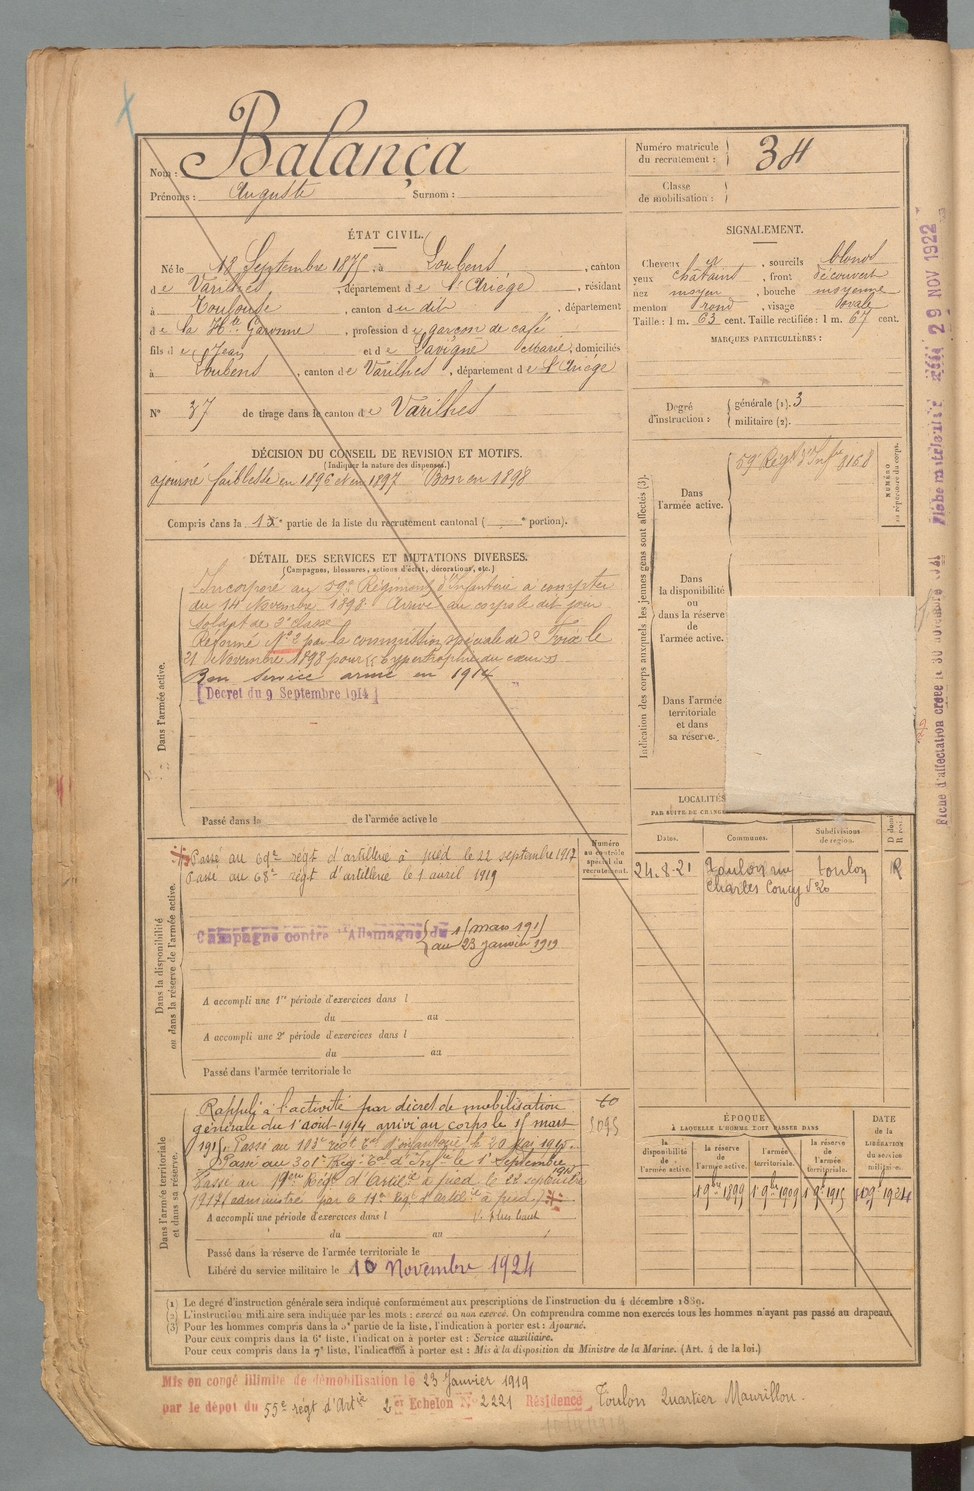 Nom : Balança
Prénoms : Auguste Surnom :
Numéro matricule du recrutement : 34
Classe de mobilisation :
ÉTAT CIVIL.
Né le 18 Septembre 1875, à Loubens, canton
de Varilhes, département de l'Ariège, résidant
à Toulouse, canton du dit, département
de la Hte Garonne, profession de garçon de café
fils de Jean et de Lavigne Marie, domiciliés
à Loubens, canton de Varilhes, département de l'Ariège
N° 37 de tirage dans le canton de Varilhes
SIGNALEMENT.
Cheveux sourcils blonds
yeux châtains, front découvert
nez moyen, bouche moyenne
menton rond, visage ovale
Taille : 1 m. 63 cent. Taille rectifiée : 1 m. 67 cent.
MARQUES PARTICULIÈRES :
Degré d'instruction : générale (1). 3
militaire (2).
DÉCISION DU CONSEIL DE REVISION ET MOTIFS.
(Indiquer la nature des dispenses.)
ajourné faiblesse en 1896 et en 1897 Bon en 1898
Compris dans la 1re partie de la liste du recrutement cantonal ( e portion).
DÉTAIL DES SERVICES ET MUTATIONS DIVERSES.
(Campagnes, blessures, actions d'éclat, décorations, etc.)
Dans l'armée active.
Incorporé au 59e Régiment d'Infanterie à compter
du 14 Novembre 1898. Arrivé au corps le dit jour
Soldat de 2e classe
Réformé N° 2 par la commission spéciale de Foix le
21 Novembre 1898 pour "hypertrophie du cœur"
Bon service armé en 1914
[Décret du 9 Septembre 1914]
Passé dans la de l'armée active le
Indication des corps auxquels les jeunes gens sont affectés (3).
Dans l'armée active.
59e Régt d'Infie 8168
NUMÉRO au répertoire du corps.
Dans la disponibilité ou dans la réserve de l'armée active.
Dans l'armée territoriale et dans sa réserve.
Dans la disponibilité ou dans la réserve de l'armée active.
Passé au 69e régt d'artillerie à pied le 22 septembre 1917
Passé au 68e régt d'artillerie le 1 avril 1919
Campagne contre l'Allemagne du 15 mars 1915
au 23 janvier 1919
Numéro au contrôle spécial du recrutement.
A accompli une 1re période d'exercices dans l
du au
A accompli une 2e période d'exercices dans l
du au
Passé dans l'armée territoriale le
LOCALITÉS
PAR SUITE DE CHANGE
Dates. Communes. Subdivisions de région.
24.8.21 Toulon rue Toulon R
Charles Coucy
Dans l'armée territoriale et dans sa réserve.
Rappelé à l'activité par décret de mobilisation
générale du 1 août 1914 arrivé au corps le 15 mars
1915. Passé au 103e régt tal d'infanterie le 20 mai 1915.
Passé au 301e Rég. tal d'Infie le 1er Septembre
Passé au Régt d'Artilie à pied le 22 septembre
1917 administré par le 11e Rég. d'Artilie à pied
A accompli une période d'exercices dans l
du au
Passé dans la réserve de l'armée territoriale le
Libéré du service militaire le 10 Novembre 1924
5095
ÉPOQUE
À LAQUELLE L'HOMME DOIT PASSER DANS
la disponibilité de l'armée active. la réserve de l'armée active. l'armée territoriale. la réserve de l'armée territoriale.
DATE de la LIBÉRATION du service militaire.
1 9bre 1899 1 9bre 1909 1 9bre 1915 10 9bre 1924
(1) Le degré d'instruction générale sera indiqué conformément aux prescriptions de l'instruction du 4 décembre 1889.
(2) L'instruction militaire sera indiquée par les mots : exercé ou non exercé. On comprendra comme non exercés tous les hommes n'ayant pas passé au drapeau.
(3) Pour les hommes compris dans la 5e partie de la liste, l'indication à porter est : Ajourné.
Pour ceux compris dans la 6e liste, l'indication à porter est : Service auxiliaire.
Pour ceux compris dans la 7e liste, l'indication à porter est : Mis à la disposition du Ministre de la Marine. (Art. 4 de la loi.)
Mis en congé illimité de démobilisation le 23 Janvier 1919
par le dépôt du 55e régt d'Artie 2er Echelon N° 2221 Résidence Toulon Quartier Mourillon.
29 NOV 1922
Fiche d'affectation créée le 30 novembre